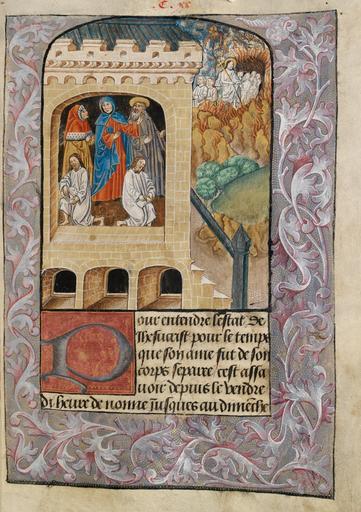 .C. xx
Pour entendre lestat de
Ihesucrist pour le temps
que son ame fut de son
corps separe cest assa
uoir depuis le vendre
di heure de nonne iusques au dimẽche